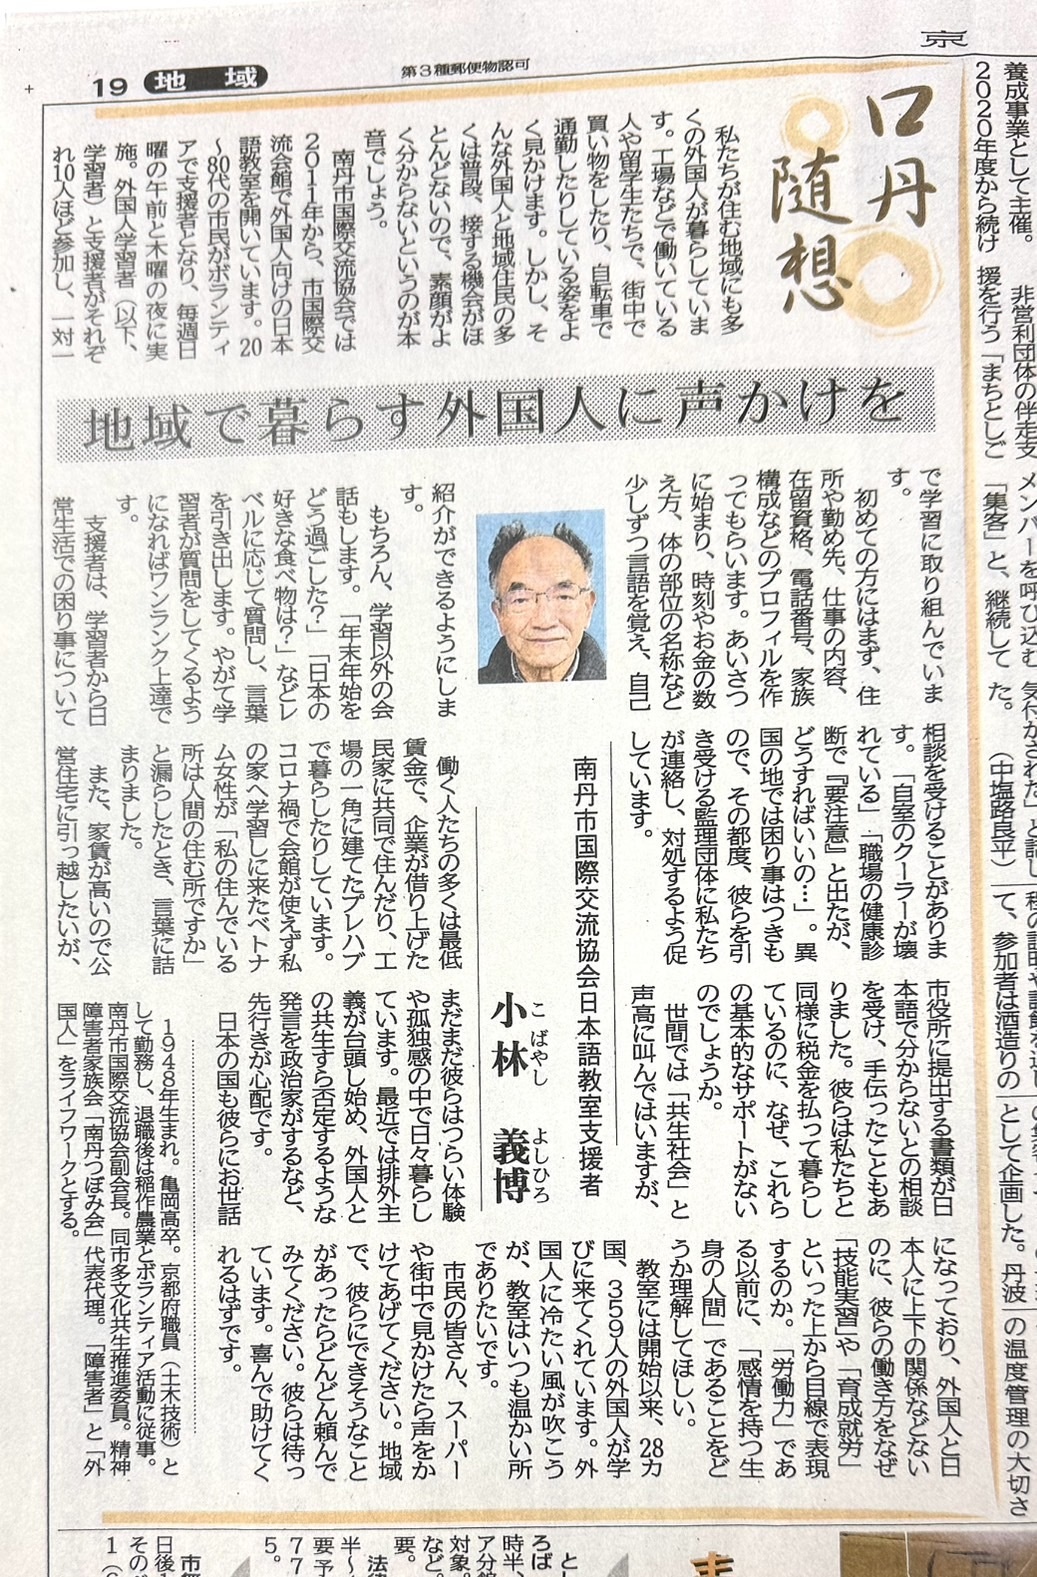 19 地域
第3種郵便物認可
京
口丹
随想
私たちが住む地域にも多
くの外国人が暮らしていま
す。工場などで働いている
人や留学生たちで、街中で
買い物をしたり、自転車で
通勤したりしている姿をよ
く見かけます。しかし、そ
んな外国人と地域住民の多
くは普段、接する機会がほ
とんどないので、素顔がよ
く分からないというのが本
音でしょう。
南丹市国際交流協会では
2011年から、市国際交
流会館で外国人向けの日本
語教室を開いています。20
~80代の市民がボランティ
アで支援者となり、毎週日
曜の午前と木曜の夜に実
施。外国人学習者(以下、
学習者)と支援者がそれぞ
れ10人ほど参加し、一対一
地域で暮らす外国人に声かけを
で学習に取り組んでいま
す。
初めての方にはまず、住
所や勤め先、仕事の内容、
在留資格、電話番号、家族
構成などのプロフィルを作
ってもらいます。あいさつ
に始まり、時刻やお金の数
え方、体の部位の名称など
少しずつ言語を覚え、自己
紹介ができるようにしま
す。
もちろん、学習以外の会
話もします。「年末年始を
どう過ごした?」「日本の
好きな食べ物は?」などレ
ベルに応じて質問し、言葉
を引き出します。やがて学
習者が質問をしてくるよう
になればワンランク上達で
す。
支援者は、学習者から日
常生活での困り事について
相談を受けることがありま
す。「自室のクーラーが壊
れている」「職場の健康診
断で『要注意』と出たが、
どうすればいいの…」。異
国の地では困り事はつきも
ので、その都度、彼らを引
き受ける監理団体に私たち
が連絡し、対処するよう促
しています。
南丹市国際交流協会日本語教室支援者
小林 義博
こばやし よしひろ
働く人たちの多くは最低
賃金で、企業が借り上げた
民家に共同で住んだり、工
場の一角に建てたプレハブ
で暮らしたりしています。
コロナ禍で会館が使えず私
の家へ学習しに来たベトナ
ム女性が「私の住んでいる
所は人間の住む所ですか」
と漏らしたとき、言葉に詰
まりました。
また、家賃が高いので公
営住宅に引っ越したいが、
市役所に提出する書類が日
本語で分からないとの相談
を受け、手伝ったこともあ
りました。彼らは私たちと
同様に税金を払って暮らし
ているのに、なぜ、これら
の基本的なサポートがない
のでしょうか。
世間では「共生社会」と
声高に叫んではいますが、
まだまだ彼らはつらい体験
や孤独感の中で日々暮らし
ています。最近では排外主
義が台頭し始め、外国人と
の共生すら否定するような
発言を政治家がするなど、
先行きが心配です。
日本の国も彼らにお世話
になっており、外国人と日
本人に上下の関係などない
のに、彼らの働き方をなぜ
「技能実習」や「育成就労」
といった上から目線で表現
するのか。「労働力」であ
る以前に、「感情を持つ生
身の人間」であることをど
うか理解してほしい。
教室には開始以来、28カ
国、359人の外国人が学
びに来てくれています。外
国人に冷たい風が吹こう
が、教室はいつも温かい所
でありたいです。
市民の皆さん、スーパー
や街中で見かけたら声をか
けてあげてください。地域
で、彼らにできそうなこと
があったらどんどん頼んで
みてください。彼らは待っ
ています。喜んで助けてく
れるはずです。
1948年生まれ。亀岡高卒。京都府職員(土木技術)と
して勤務し、退職後は稲作農業とボランティア活動に従事。
南丹市国際交流協会副会長。同市多文化共生推進委員。精神
障害者家族会「南丹つぼみ会」代表代理。「障害者」と「外
国人」をライフワークとする。
養成事業として主催。
2020年度から続け
非営利団体の伴走支
援を行う「まちとしご
メンバーを呼び込む
「集客」と、継続して
気付かされた」と話し
た。 (中塩路良平)
て、参加者は酒造りの
として企画した。丹波
の温度管理の大切さ